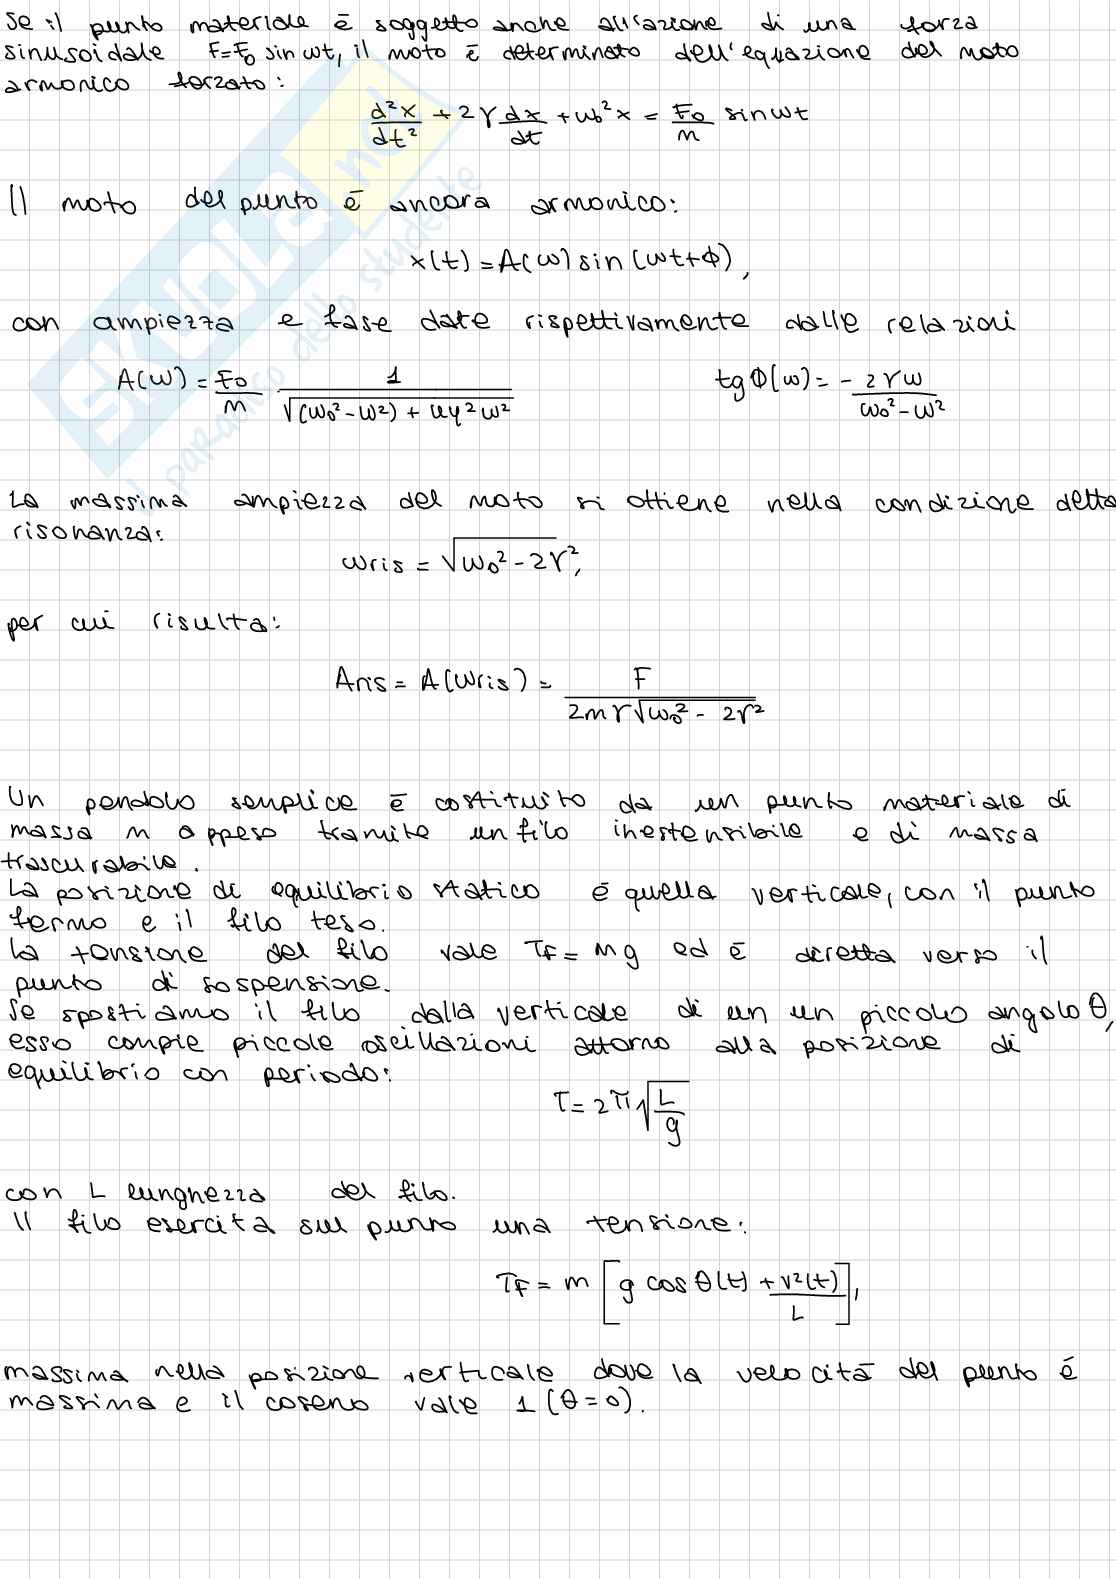 Se il punto materiale è soggetto anche all'azione di una forza
sinusoidale F=F₀ sin ωt, il moto è determinato dell'equazione del moto
armonico forzato:
d²x/dt² + 2γ dx/dt + ω₀²x = F₀/m sin ωt
Il moto del punto è ancora armonico:
x(t) = A(ω) sin (ωt+ϕ),
con ampiezza e fase date rispettivamente dalle relazioni
A(ω) = F₀/m 1/√((ω₀²-ω²) + 4γ²ω²) tg ϕ(ω) = - 2γω/(ω₀²-ω²)
La massima ampiezza del moto si ottiene nella condizione detta
risonanza:
ωris = √(ω₀² - 2γ²),
per cui risulta:
Aris = A(ωris) = F/(2mγ√(ω₀² - 2γ²))
Un pendolo semplice è costituito da un punto materiale di
massa m appeso tramite un filo inestensibile e di massa
trascurabile.
La posizione di equilibrio statico è quella verticale, con il punto
fermo e il filo teso.
La tensione del filo vale TF = mg ed è diretta verso il
punto di sospensione.
Se spostiamo il filo dalla verticale di un un piccolo angolo θ,
esso compie piccole oscillazioni attorno alla posizione di
equilibrio con periodo:
T = 2π√(L/g)
con L lunghezza del filo.
Il filo esercita sul punto una tensione:
TF = m [g cos θ(t) + v²(t)/L],
massima nella posizione verticale dove la velocità del punto è
massima e il coseno vale 1 (θ=0).
SKUOLA.net
il paradiso dello studente